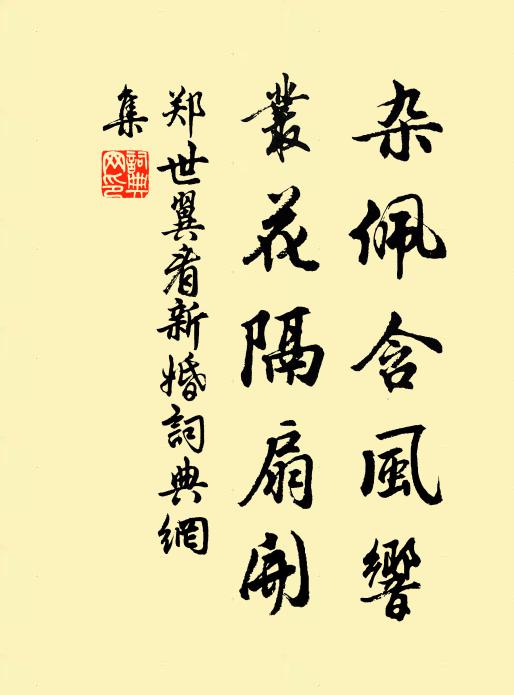 杂佩含風響
叢花隔扇開
郑世翼看新婚詞典網
集
詞典
网印